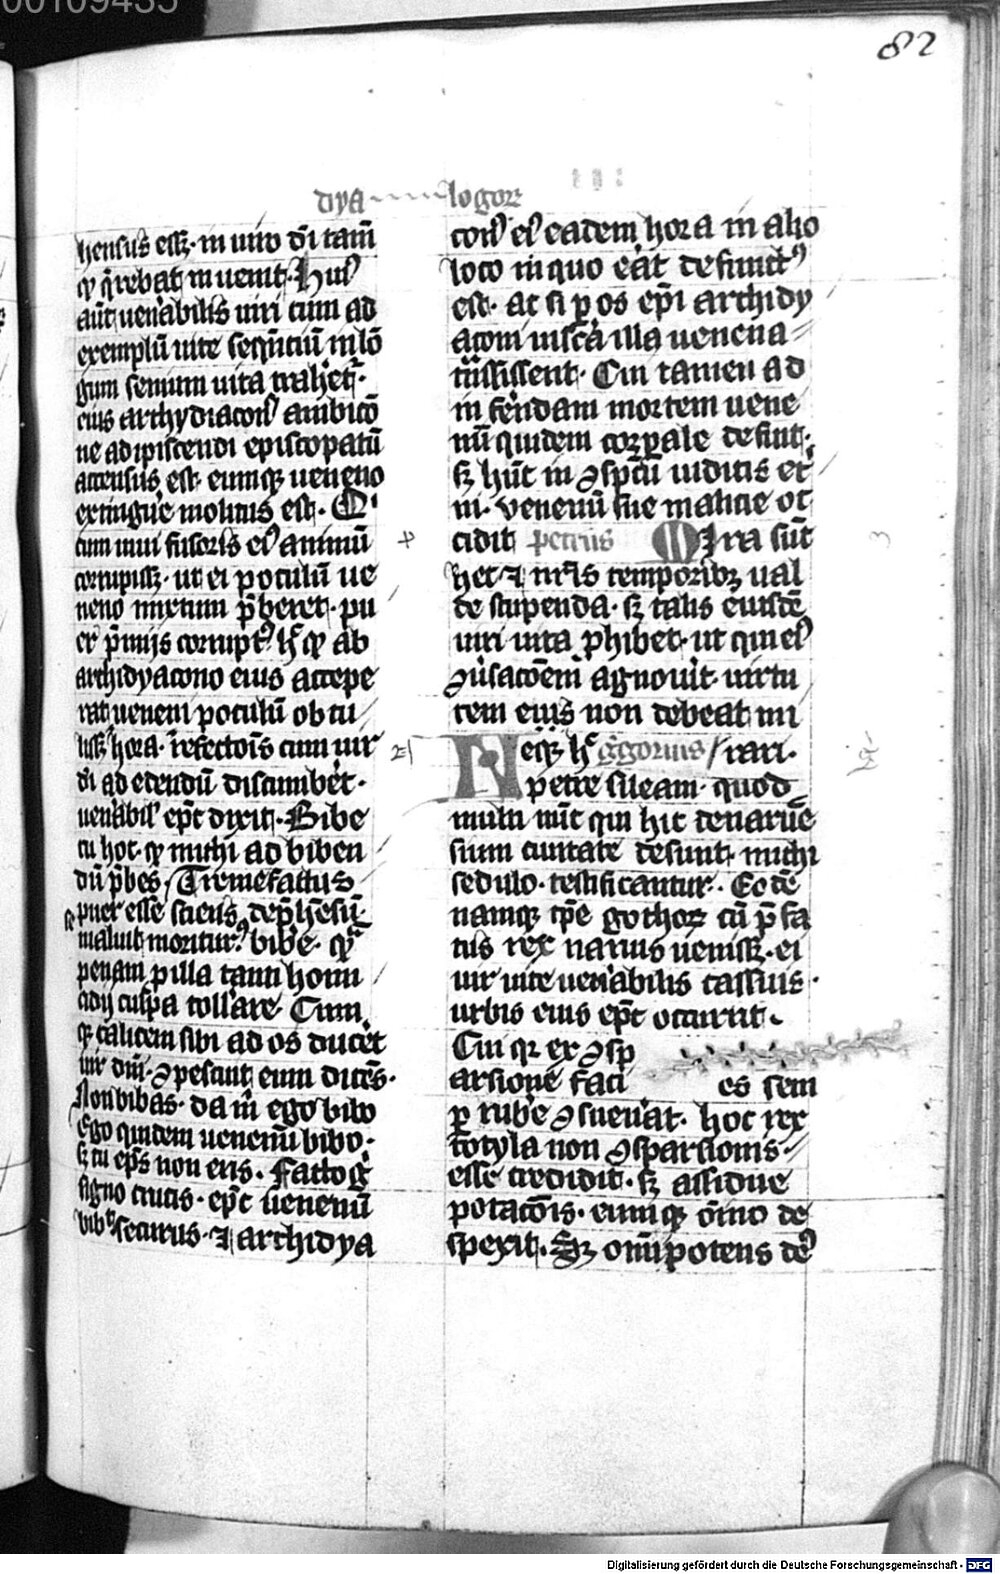 00109435
82
dya logoꝝ
III
hensus eēt · in viro dn̄i tam̄
ꝙ q̄rebat invenit · Huiꝰ
aūt ven̄abilis viri cum ad
exemplū vite seq̄nciū in lō
gum senium vita trahēt̉ ·
eius archydiaconꝰ ambicō
ne adipiscendi episcopatū
accensus est eumqꝫ veneno
extingue molitus est · Q'
cum vini fusoris eiꝰ animū
corrupissꝫ · ut ei poculū ve
neno mixtum p̄beret · pu
er p̄mijs corruptꝰ hͨ ꝙ ab
archidyacono eius accepe
rat veneni poculū obtu
lissꝫ hora · refectōis cum vir
di ad edendū discumbēt ·
venabilꝰ ep̄c dixit · Bibe
tu hoc · ꝙ michi ad biben
dū p̄bes / Tremefactus
puer esse sciens dep̄hēsū
maluit moriturꝰ bibe · qͣ
penam ꝑ illa tanti homi
cidij culpa tollare Cum
qꝫ calicem sibi ad os ducēt
vir dn̄i · ꝯpescuit eum dicēs ·
Non bibas · da m̄ ego bibo
Ego quidem venenū bibo ·
sꝫ tu ep̄s non eris · Facto gͦ
signo crucis · ep̄c venenū
bibꝰ securus · ⁊ archidya
conꝰ eiꝰ eadem hora in alio
loco in quo eāt defunctꝰ
est · ac si ꝑ os ep̄i archidy
aconi viscā illa venena
tͣnsissent · Cui tamen ad
in fērdam mortem vene
nū quidem corꝑale defuit ·
sꝫ hūc in ꝯspc̄u iudicis et̉
ni · venenū sue malicie oc
cidit petrus Mira sūt
hec ⁊ nr̄is temporibꝫ val
de stupenda · sꝫ talis eiusdē
viri vita ꝑhibet̉ · ut qui eiꝰ
ꝯusacōem agnovit · virtu
tem eius non debeat mi
rari · Neqꝫ hͨ g̉gorius
petre sileam · quod
multi nūc qui hic de narnē
sium civitate desunt michi
sedulo · testificantur · Eodē
namqꝫ tp̄e gothoꝝ cū p̄fa
tus rex narnis venissꝫ · ei
vir vite ven̄abilis cassius ·
urbis eius ep̄c occurrit ·
Cui qꝫ ex ꝯsp
arsione faci es sem
ꝑ rube ꝯsuevāt · hoc rex
totyla non ꝯsparsionis ·
esse credidit · sꝫ assidue
potacōis · eumqꝫ ōino de
spexit · Sꝫ om̄ipotens dē
Digitalisierung gefördert durch die Deutsche Forschungsgemeinschaft - DFG